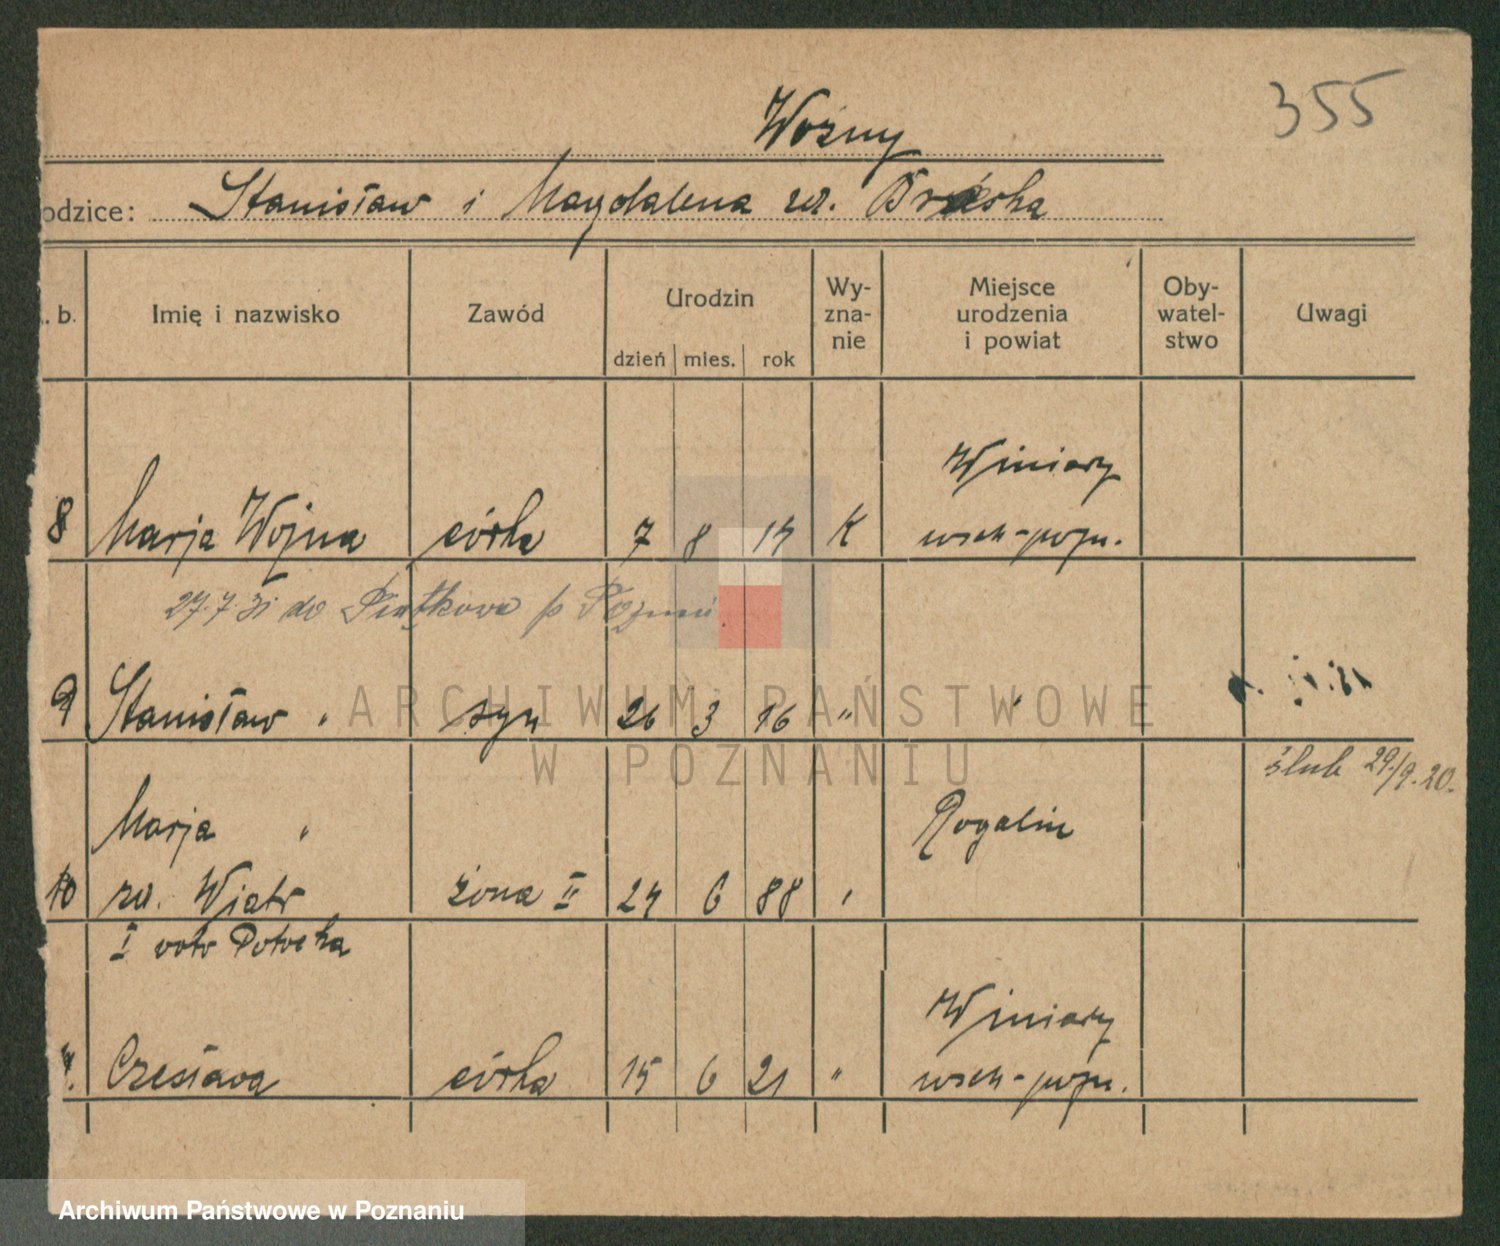 355
Woźny
odzice: Stanisław i Magdalena zd.
. b. Imię i nazwisko Zawód Urodzin dzień mies. rok Wy-zna-nie Miejsce urodzenia i powiat Oby-watel-stwo Uwagi
Winiary
8 Marja Wojna córka 7 8 14 K wsch-pozn.
27.7.31 do Piątkowa p Poznań
9 Stanisław " syn 26 3 16 " "
ślub 29./9.20.
Marja " Rogalin
10 zd. Wiatr żona II 24 6 88 "
I voto
Winiary
Czesława córka 15 6 21 " wsch-pozn.
ARCHIWUM PAŃSTWOWE
W POZNANIU
Archiwum Państwowe w Poznaniu